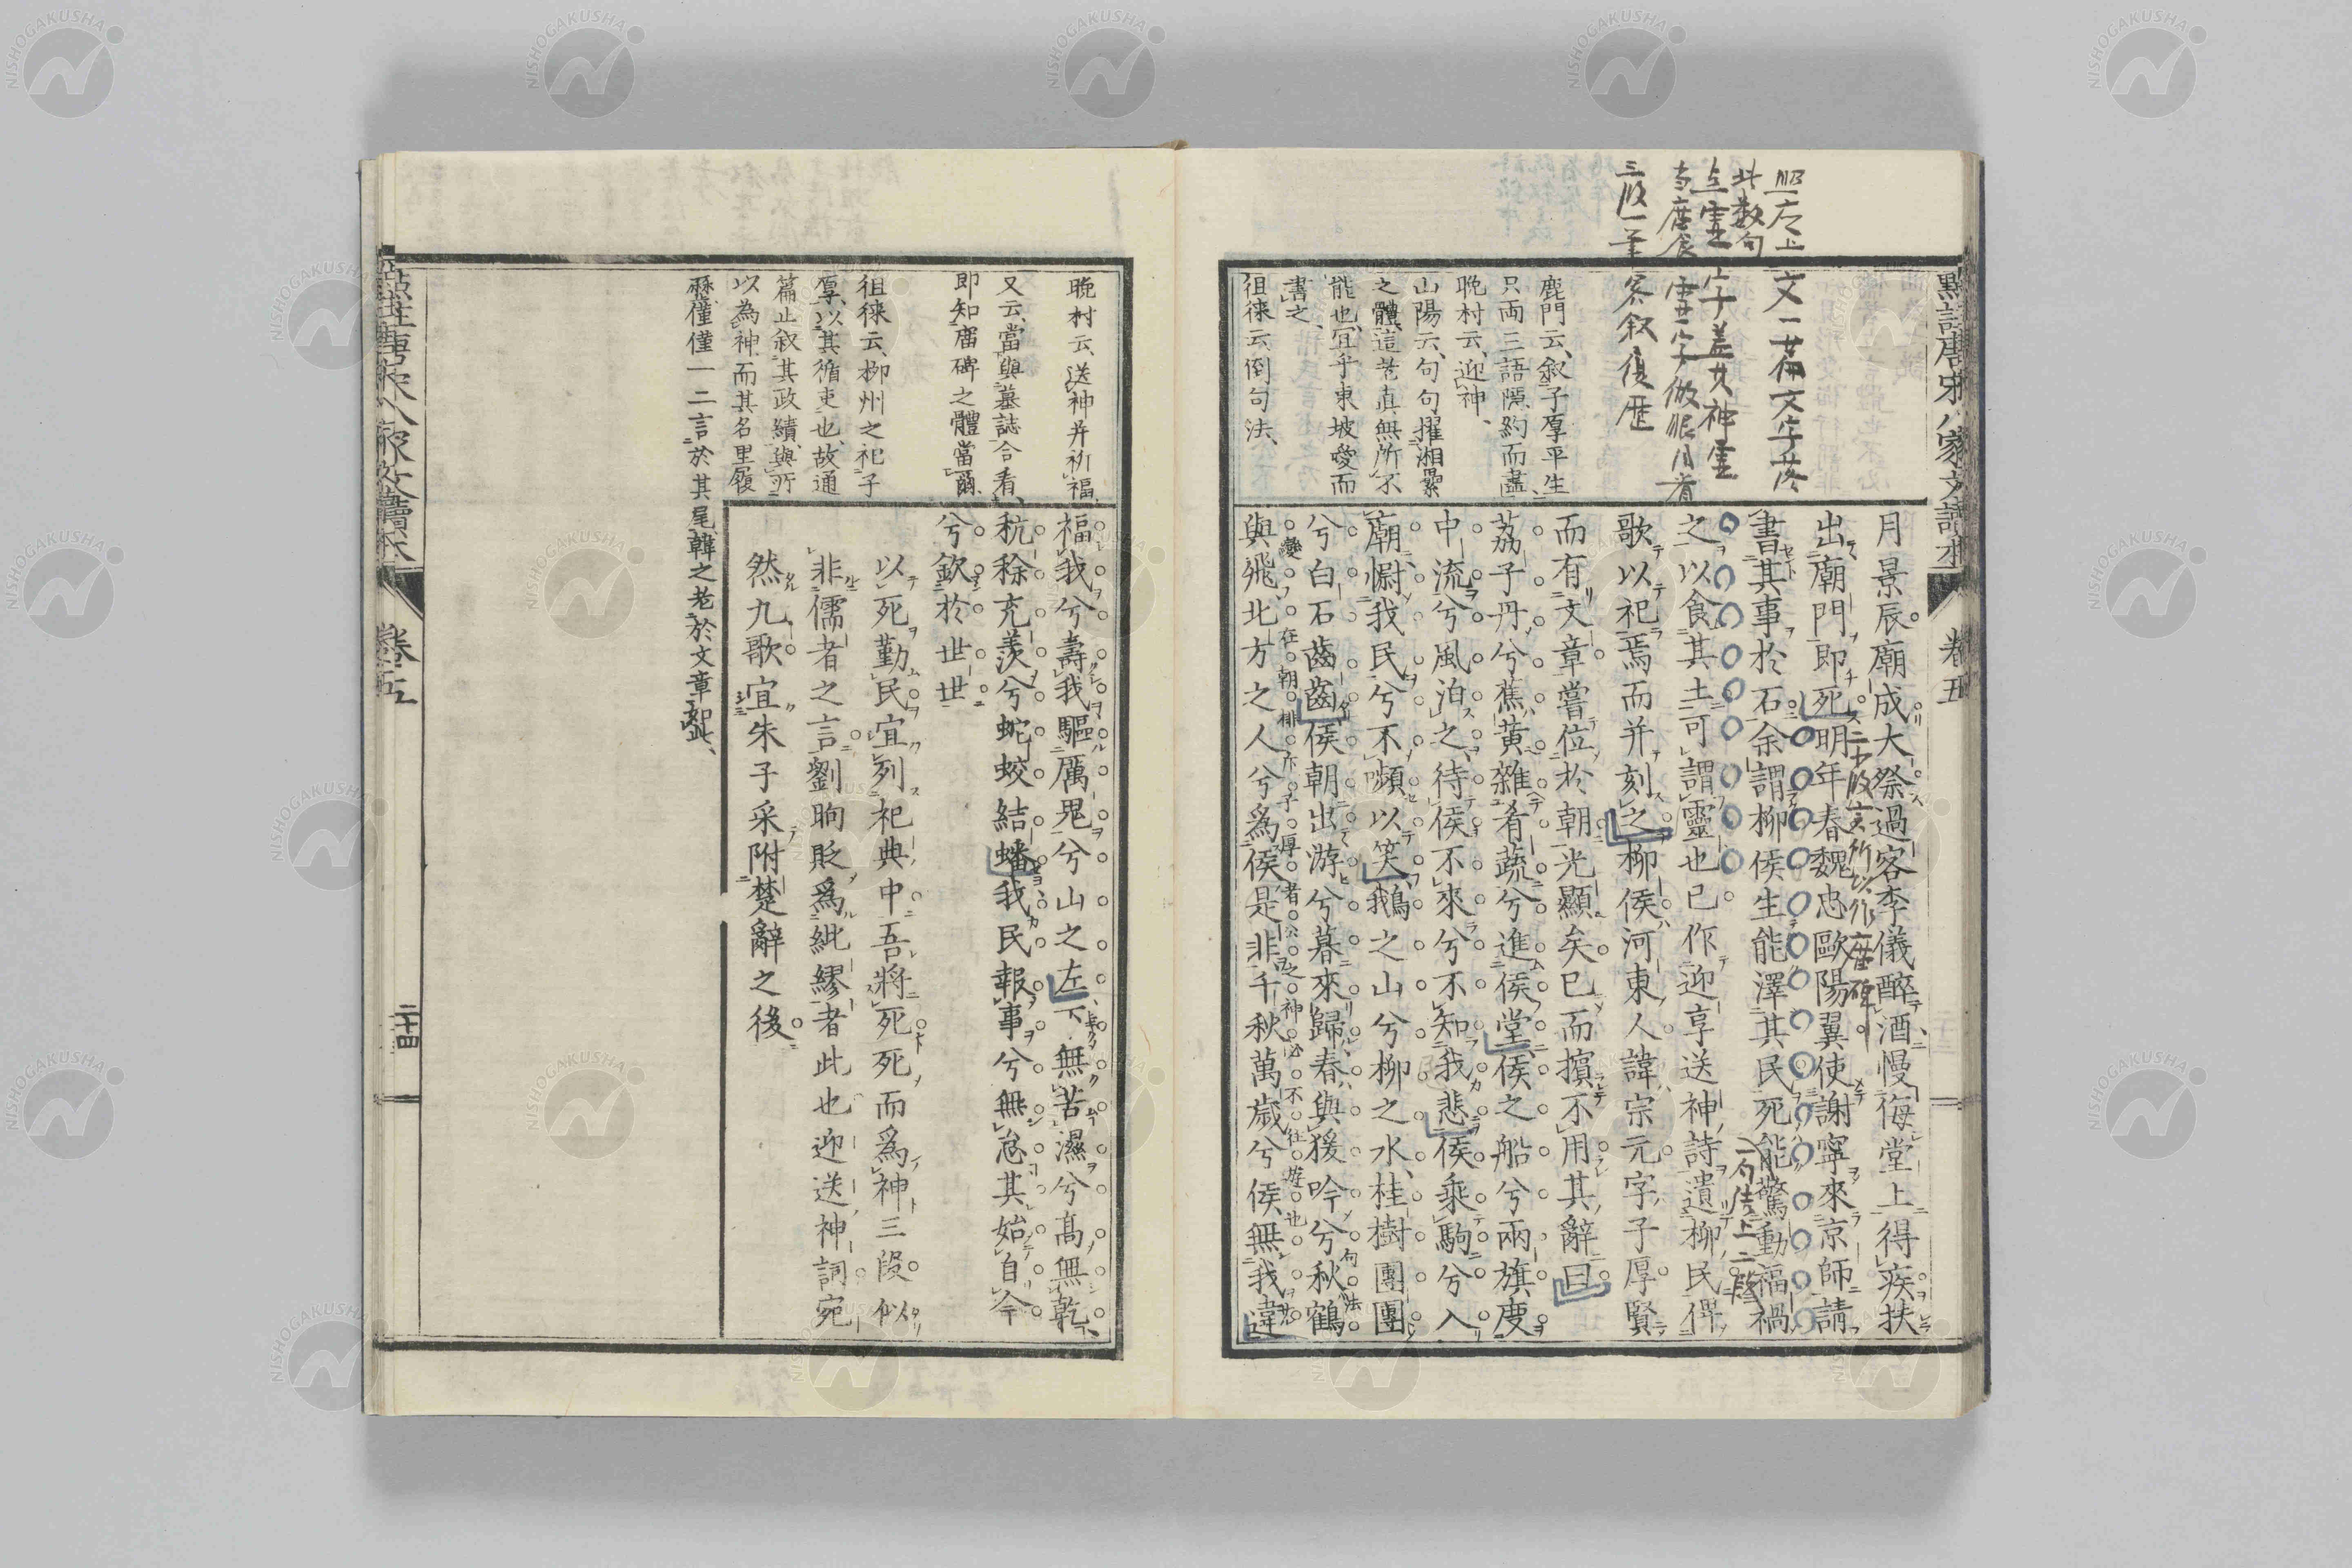 月景辰廟成大祭過客李儀醉酒慢侮堂上得疾扶
出廟門即死明年春魏忠歐陽翼使謝寧來京師請
書其事於石余謂柳侯生能澤其民死能驚動福禍
之以食其土可謂靈也已作迎享送神詩遺柳民俾
歌以祀焉而并刻之柳侯河東人諱宗元字子厚賢
而有文章嘗位於朝光顯矣已而擯不用其辭曰
荔子丹兮蕉黃雜肴蔬兮進侯堂侯之船兮兩旗度
中流兮風泊之待侯不來兮不知我悲侯乘駒兮入
廟慰我民兮不嚬以笑鵝之山兮柳之水桂樹團團
兮白石齒齒侯朝出游兮暮來歸春與猨吟兮秋鶴
與飛北方之人兮為侯是非千秋萬歲兮侯無我違
鹿門云、叙子厚平生
只兩三語隱約而盡、
晚村云、迎神、
山陽云、句句擢湘纍
之體、這老真無所不
能也、宜乎東坡愛而
書之、
徂徠云倒句法、
三段一筆略叙復歴
一句結上二段
點註唐宋八家文讀本
卷五
福我兮壽我驅厲鬼兮山之左下無苦濕兮高無乾
秔稌充羨兮蛇蛟結蟠我民報事兮無怠其始自今
兮欽於世世
以死勤民宜列祀典中吾將死死而爲神三段似
非儒者之言劉昫貶爲紕繆者此也迎送神詞宛
然九歌宜朱子采附楚辭之後
晚村云、送神并祈福、
又云、當與墓誌合看、
即知廟碑之體當爾、
徂徠云、柳州之祀子
厚、以其循吏也、故通
篇止叙其政績、與所
以為神、而其名里履
歷、僅僅一二言於其尾、韓之老於文章如此、
卷五
二十四